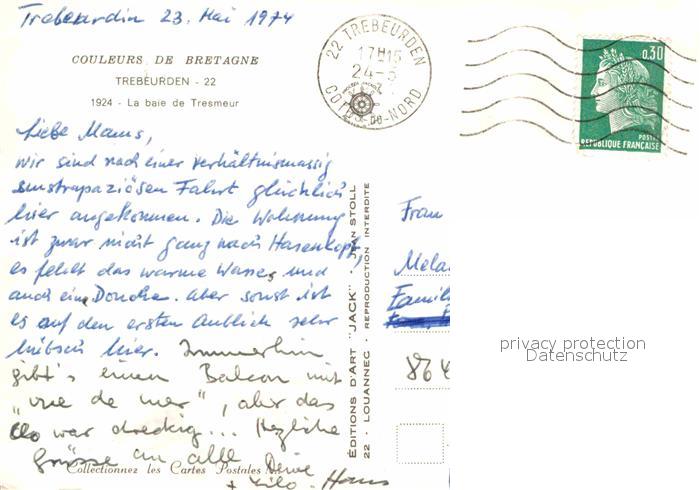 Trebeurdin 23. Mai 1974
COULEURS DE BRETAGNE
TREBEURDEN - 22
1924 - La baie de Tresmeur
22 TREBEURDEN
17H15
24-5
COTES-DU-NORD
0,30
POSTES
REPUBLIQUE FRANÇAISE
Liebe Mams,
wir sind nach einer verhältnismässig
unstrapaziösen Fahrt glücklich
hier angekommen. Die Wohnung
ist zwar nicht ganz nach Hasenkopf,
es fehlt das warme Wasser und
auch eine Douche. Aber sonst ist
es auf den ersten Anblick sehr
hübsch hier. Immerhin
gibt's einen Balcon mit
"vue de mer", aber das
Clo war dreckig... Herzliche
Grüsse an alle Deine
+ Lilo - Hans
Collectionnez les Cartes Postales
ÉDITIONS D'ART "JACK" - JEAN STOLL
22 - LOUANNEC - REPRODUCTION INTERDITE
Frau
Mela
Famil
864
privacy protection
Datenschutz